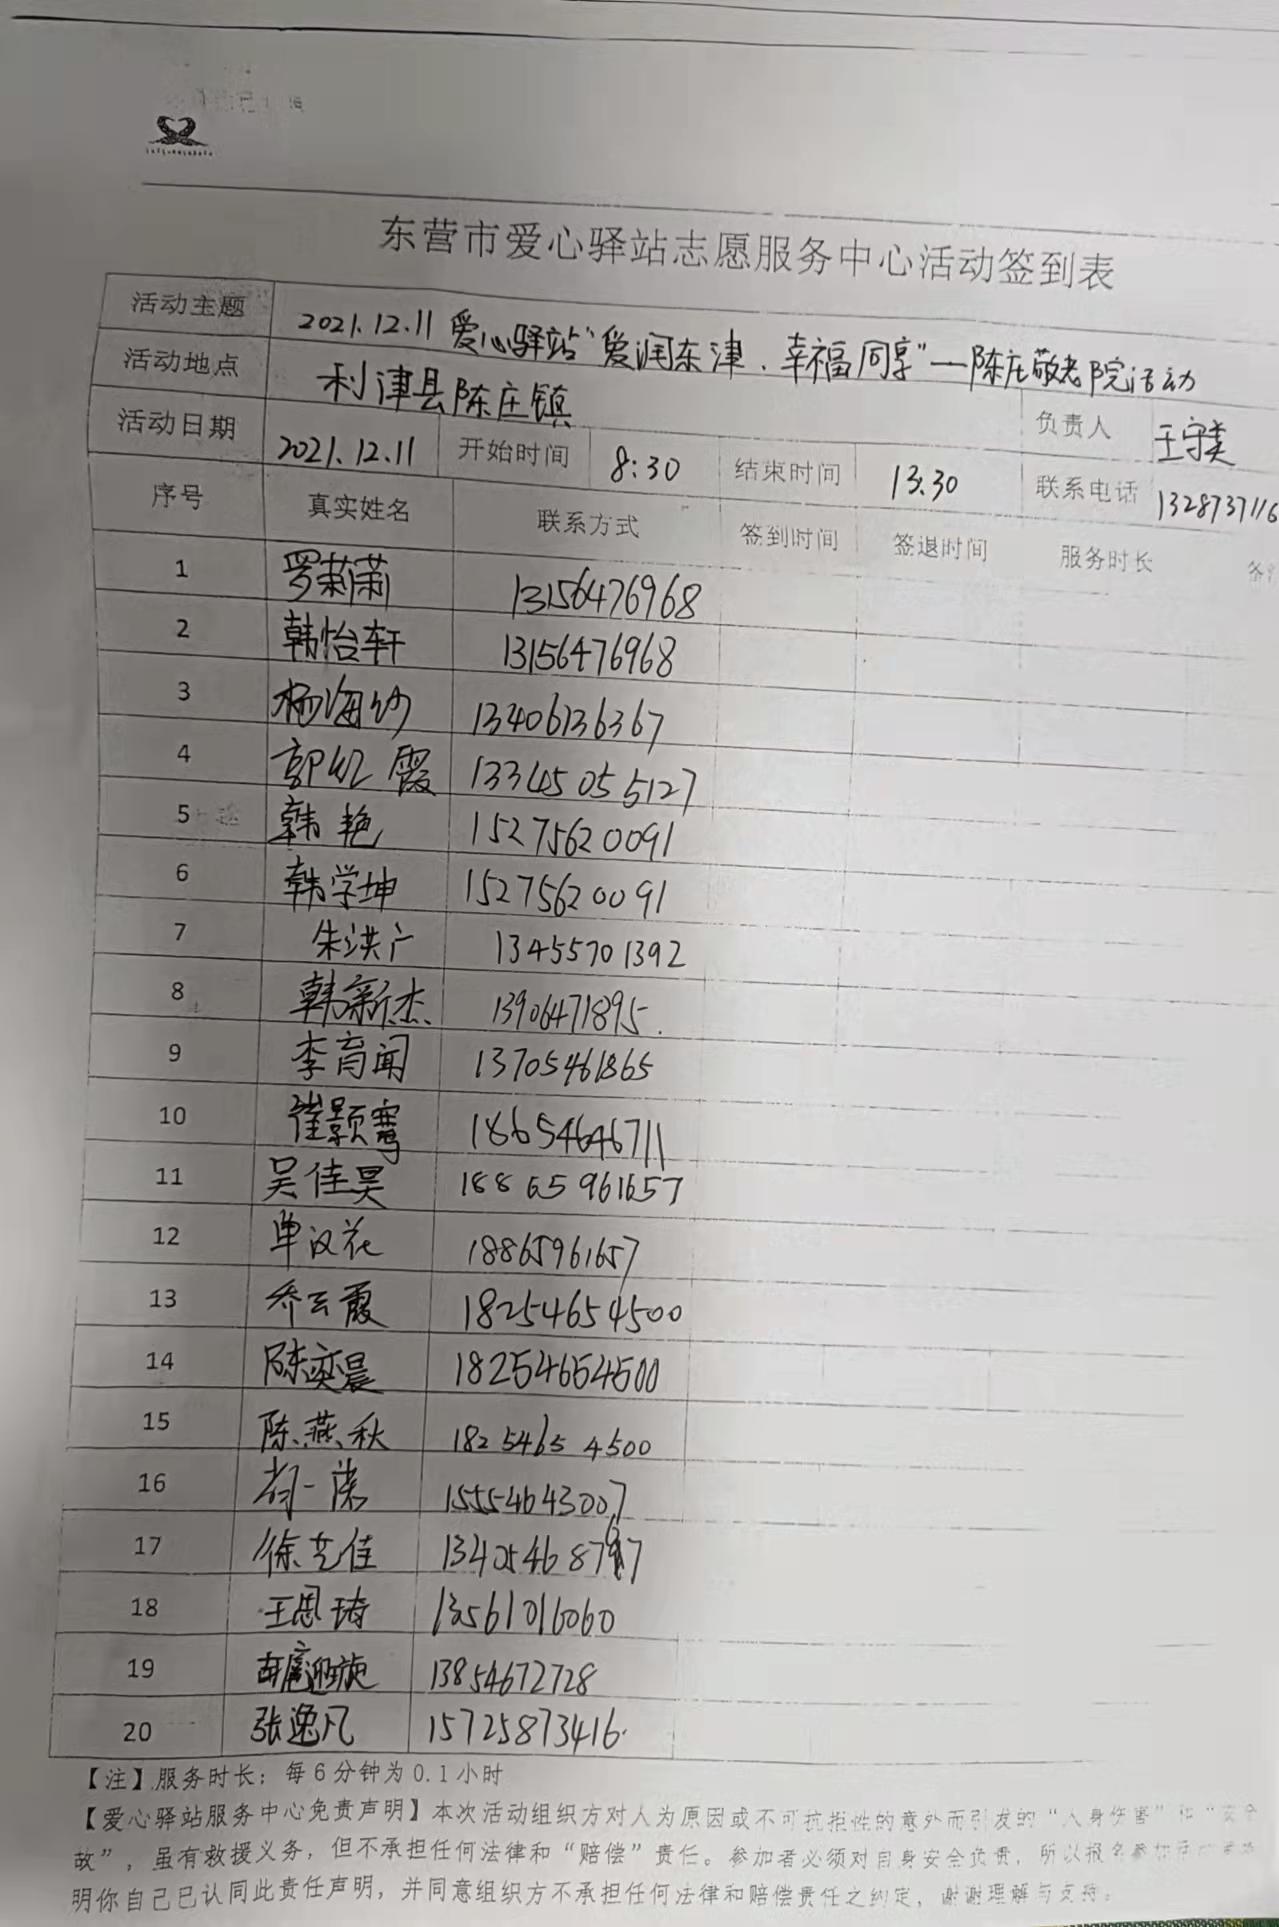 东营市爱心驿站志愿服务中心活动签到表
活动主题 2021.12.11 爱心驿站"爱润东津.幸福同享"—陈庄敬老院活动
活动地点 利津县陈庄镇 负责人 王守美
活动日期 2021.12.11 开始时间 8:30 结束时间 13:30 联系电话 1328737116
序号 真实姓名 联系方式 签到时间 签退时间 服务时长
1 罗莉萧 13156476968
2 韩怡轩 13156476968
3 杨海妙 13406136367
4 郭红霞 13345055127
5 韩艳 15275620091
6 韩学坤 15275620091
7 朱洪广 13455701392
8 韩新杰 13906471895
9 李育闻 13705461865
10 崔颢骞 18654646711
11 吴佳昊 18865961657
12 单汉花 18865961657
13 乔云霞 18254654500
14 陈奕晨 18254654500
15 陈燕秋 18254654500
16 15554643007
17 徐艺佳 134054687
18 王思琦 13561016060
19 13854672728
20 张逸凡 15725873416
【注】服务时长：每6分钟为0.1小时
【爱心驿站服务中心免责声明】本次活动组织方对人为原因或不可抗拒性的意外而引发的“人身伤害”和“安全
故”，虽有救援义务，但不承担任何法律和“赔偿”责任。参加者必须对自身安全负责，所以报名参加
明你自己已认同此责任声明，并同意组织方不承担任何法律和赔偿责任之约定，谢谢理解与支持。